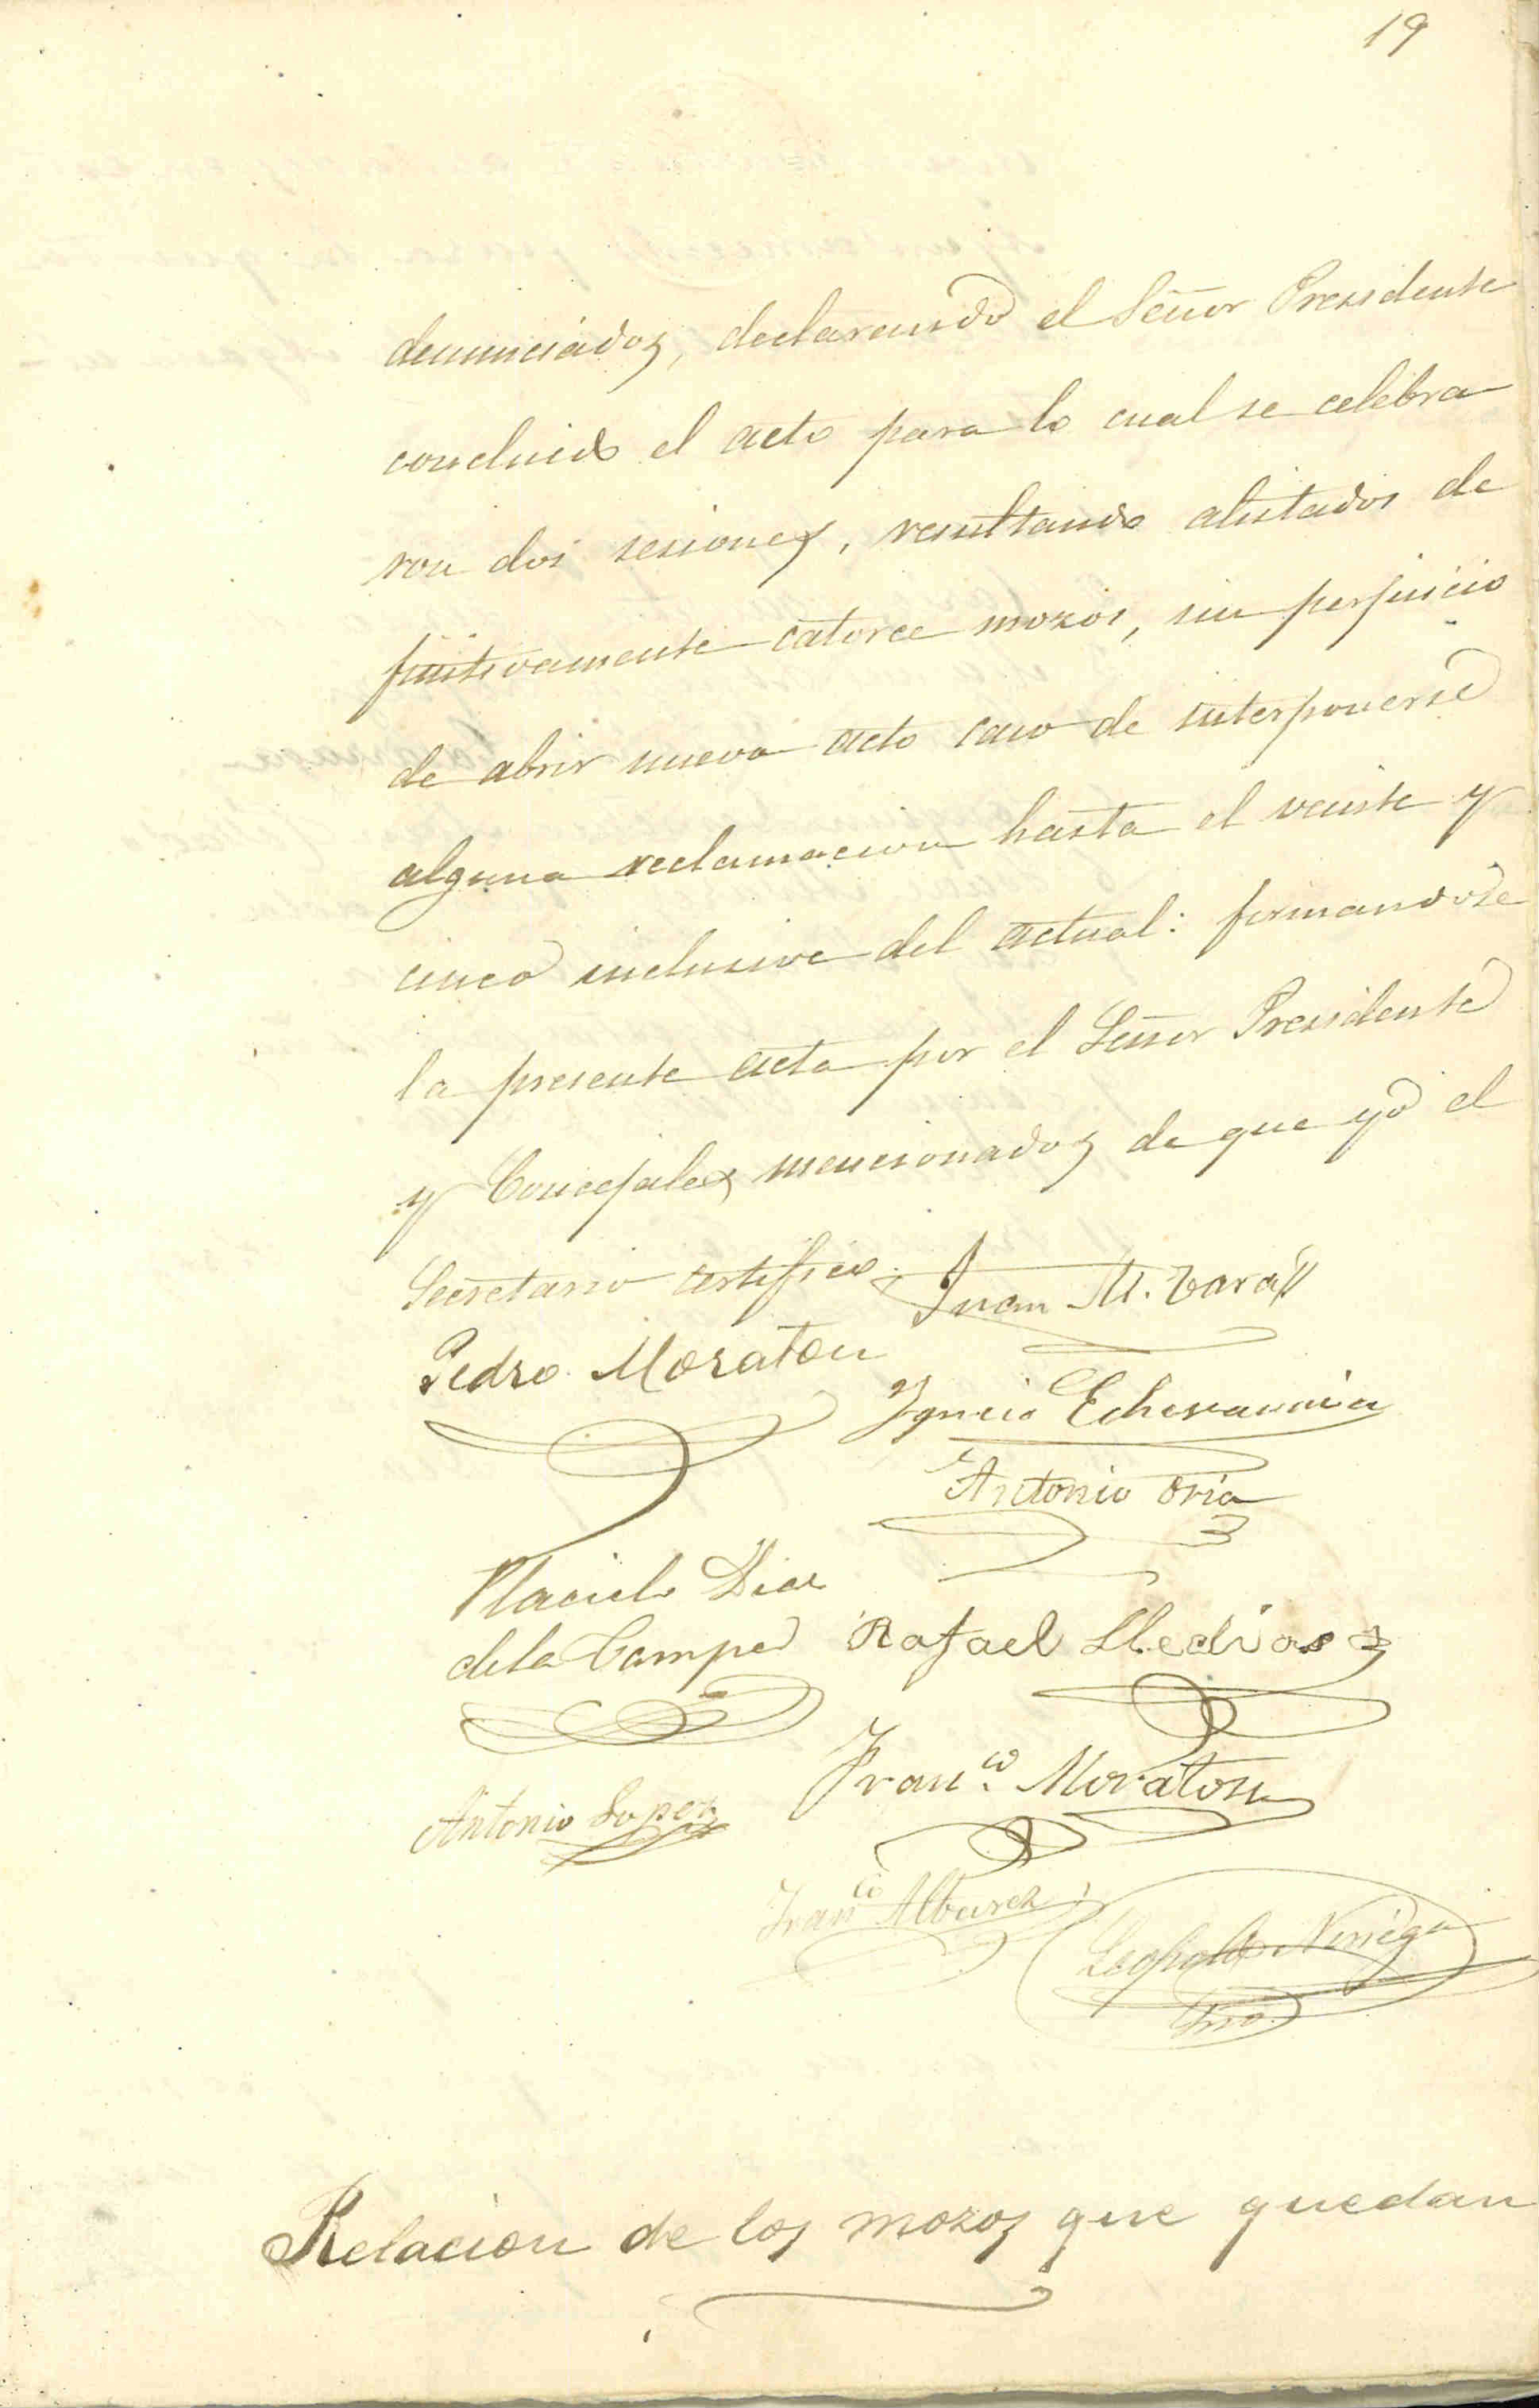 19
denunciados, declarando el Señor Presidente
concluido el acto para lo cual se celebra
ron dos sesiones, resultando alistados de
finitivamente catorce mozos, sin perjuicio
de abrir nueva acto caso de interponerse
alguna reclamacion hasta el veinte y
cinco inclusive del actual: firmandose
la presente acta por el Señor Presidente
y Concejales mencionados de que yo el
Secretario certifico.
Juan M. 
Pedro Moraton
Ignacio Echevarria
Antonio Oria
Placido Diaz
de la Campa
Rafael Lledias
Fran.co Moraton
Antonio Lopez
Franco Alvarez
Leopoldo Noriega
Srio
Relacion de los mozos que quedan